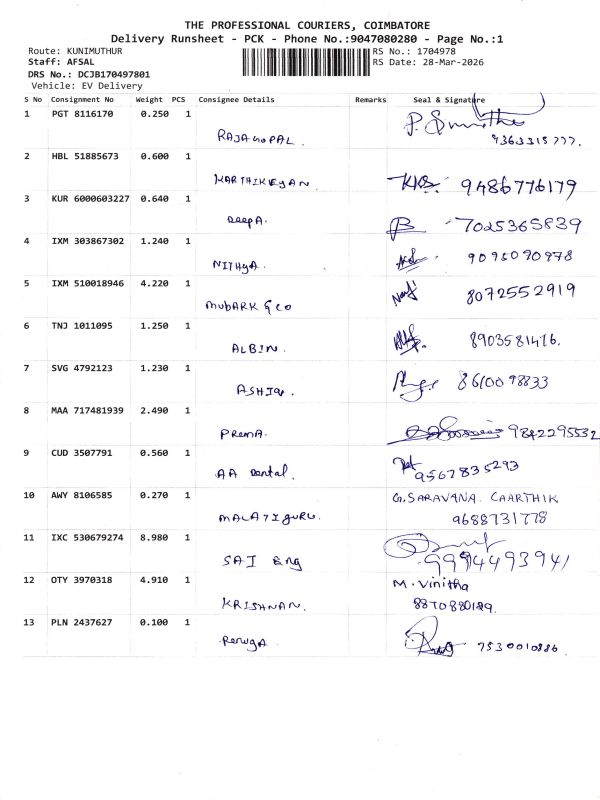 THE PROFESSIONAL COURIERS, COIMBATORE
Delivery Runsheet - PCK - Phone No.:9047080280 - Page No.:1
Route: KUNIMUTHUR RS No.: 1704978
Staff: AFSAL RS Date: 28-Mar-2026
DRS No.: DCJB170497801
Vehicle: EV Delivery
S No Consignment No Weight PCS Consignee Details Remarks Seal & Signature
1 PGT 8116170 0.250 1
RAJAGOPAL 9363315777.
2 HBL 51885673 0.600 1
KARTHIKEYAN 9486776179
3 KUR 6000603227 0.640 1
DeepA. 7025365839
4 IXM 303867302 1.240 1
NITHYA. 9095090978
5 IXM 510018946 4.220 1
MUBARK & CO 8072552919
6 TNJ 1011095 1.250 1
ALBIN. 8903581476.
7 SVG 4792123 1.230 1
ASHIQ. 8610098833
8 MAA 717481939 2.490 1
PremA. 9842295532
9 CUD 3507791 0.560 1
AA Dental. 9567835293
10 AWY 8106585 0.270 1 G.SARAVANA CAARTHIK
MALATIGURU. 9688731778
11 IXC 530679274 8.980 1
SAI Eng 9994493941
12 OTY 3970318 4.910 1 M. Vinitha
KRISHNAN. 8870880189.
13 PLN 2437627 0.100 1
RenugA 7530010886.